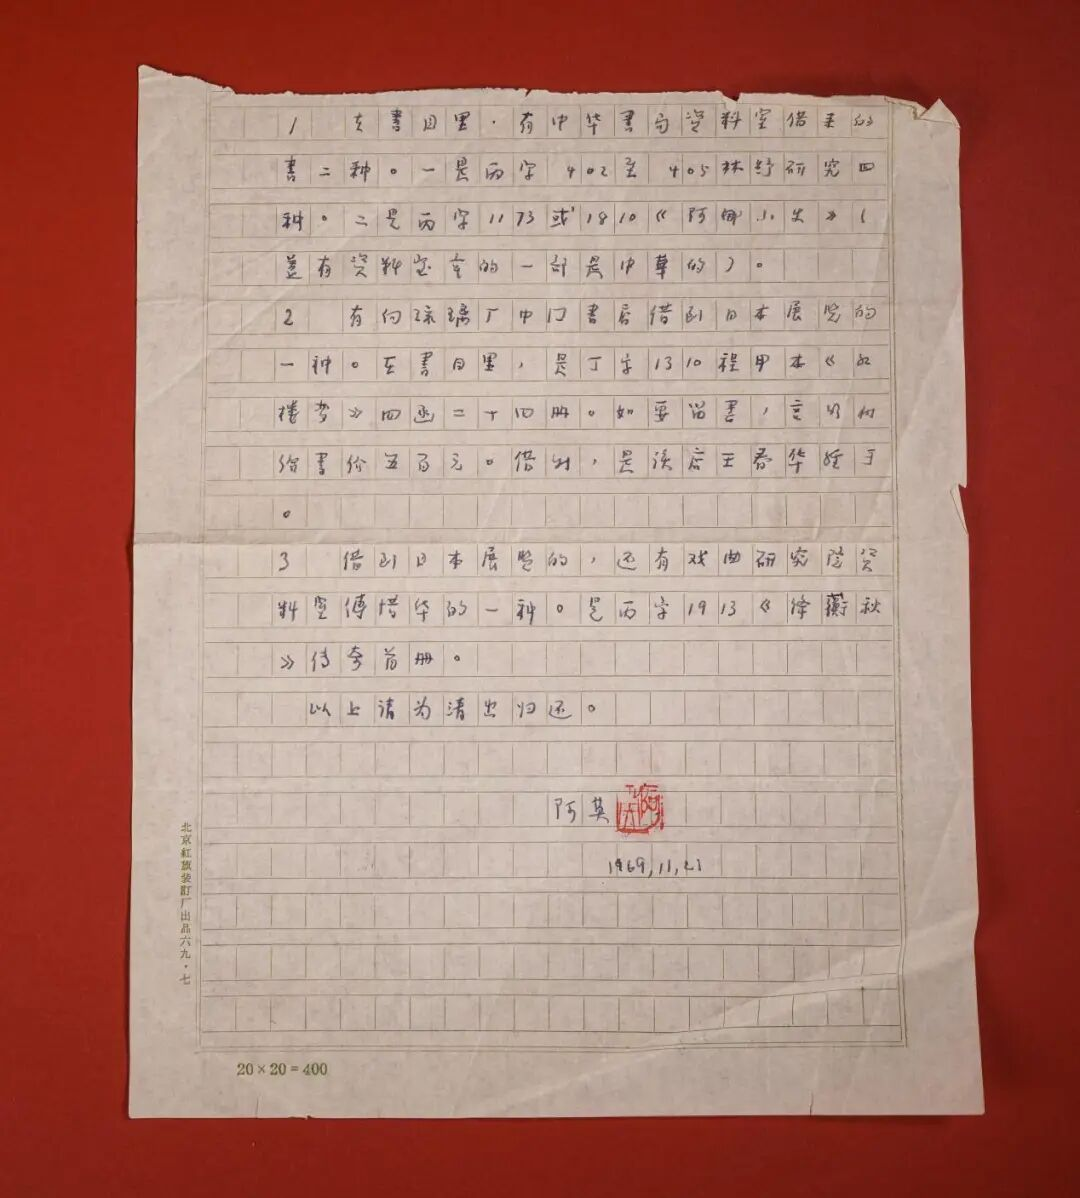 1 在書目里，有中华書局资料室借来的
書二种。一是丙字402至405林纾研究四
种。二是丙字1173或1810《阿娜小史》（
盖有资料室章的一部是中華的）。
2 有向琉璃厂中门書店借到日本展览的
一种。在書目里，是丁字1310程甲本《红
楼梦》四函二十四册。如要留書，言明付
给書价五百元。借时，是该店王春华经手
。
3 借到日本展览的，还有戏曲研究院资
料室傅惜华的一种。是丙字1913《徐蘅秋
》传奇首册。
以上请为清出归还。
阿英
1969,11,21
北京紅旗装訂厂出品六九·七
20×20=400